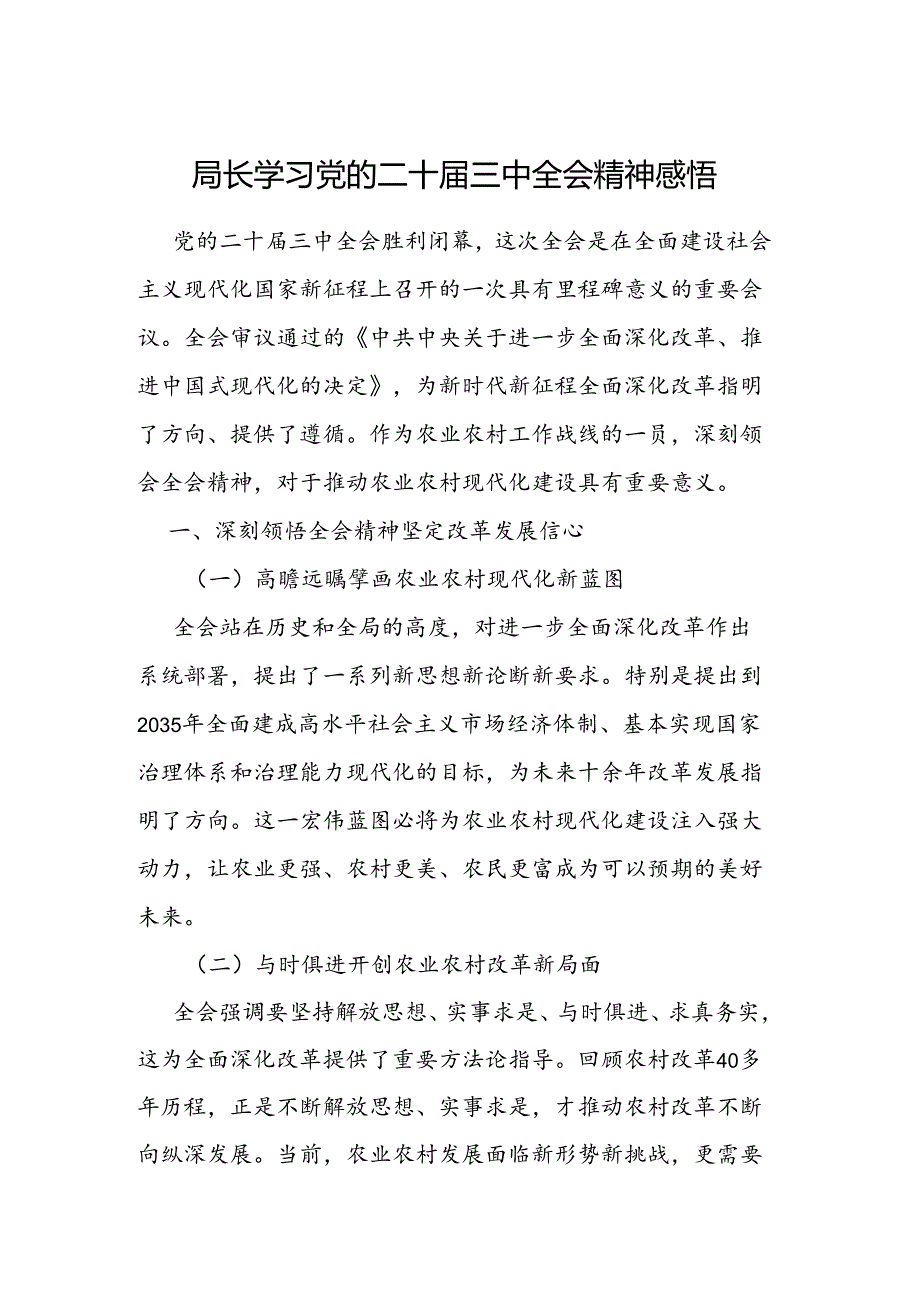 局长学习党的二十届三中全会精神感悟
党的二十届三中全会胜利闭幕，这次全会是在全面建设社会
主义现代化国家新征程上召开的一次具有里程碑意义的重要会
议。全会审议通过的《中共中央关于进一步全面深化改革、推
进中国式现代化的决定》，为新时代新征程全面深化改革指明
了方向、提供了遵循。作为农业农村工作战线的一员，深刻领
会全会精神，对于推动农业农村现代化建设具有重要意义。
一、深刻领悟全会精神坚定改革发展信心
（一）高瞻远瞩擘画农业农村现代化新蓝图
全会站在历史和全局的高度，对进一步全面深化改革作出
系统部署，提出了一系列新思想新论断新要求。特别是提出到
2035年全面建成高水平社会主义市场经济体制、基本实现国家
治理体系和治理能力现代化的目标，为未来十余年改革发展指
明了方向。这一宏伟蓝图必将为农业农村现代化建设注入强大
动力，让农业更强、农村更美、农民更富成为可以预期的美好
未来。
（二）与时俱进开创农业农村改革新局面
全会强调要坚持解放思想、实事求是、与时俱进、求真务实，
这为全面深化改革提供了重要方法论指导。回顾农村改革40多
年历程，正是不断解放思想、实事求是，才推动农村改革不断
向纵深发展。当前，农业农村发展面临新形势新挑战，更需要